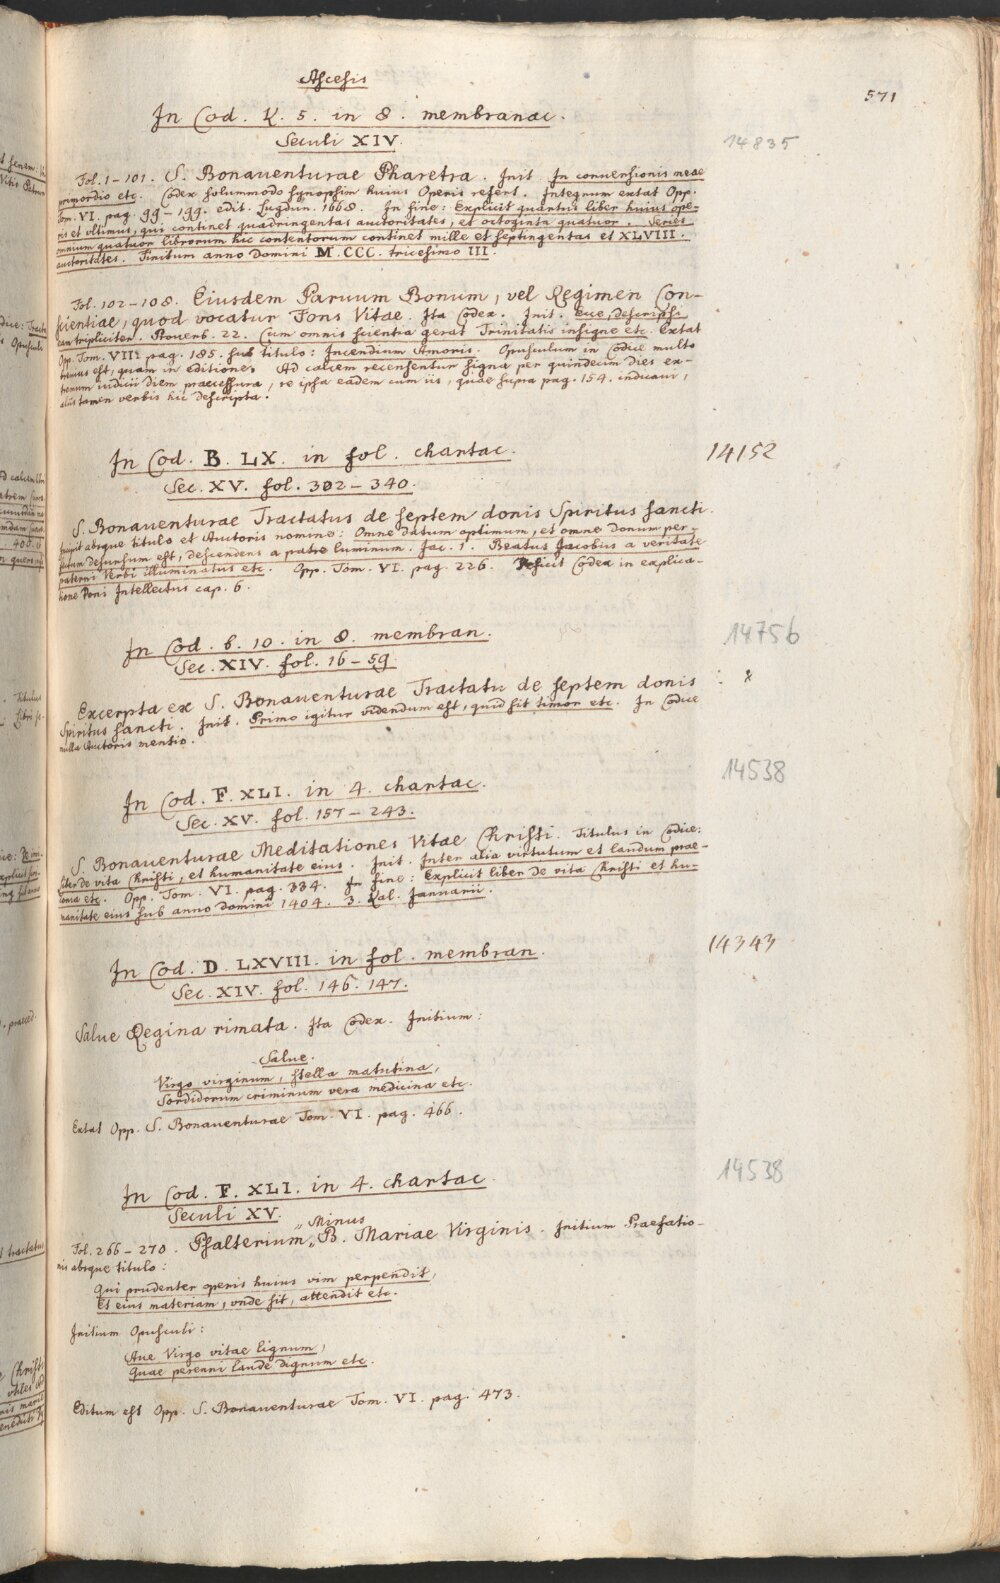 Ascesis
571
In Cod. K. 5. in 8. membranac.
Seculi XIV.
14835
Fol. 1–101. S. Bonauenturae Pharetra. Init. In conuersionis meae
primordio etc. Codex solummodo synopsim huius Operis refert. Integrum extat Opp.
Tom. VI. pag. 99–199. edit. Lugdun. 1668. In fine: Explicit quartus liber huius ope-
ris et vltimus, qui continet quadringentas auctoritates, et octoginta quatuor. Series
omnium quatuor librorum hic contentorum continet mille et septingentas et XLVIII.
auctoritates. Finitum anno Domini M.CCC. tricesimo III.
Fol. 102–108. Eiusdem Paruum Bonum, vel Regimen Con-
scientiae, quod vocatur Fons Vitae. Ita Codex. Init. Ecce descripsi
eam tripliciter. Prouerb. 22. Cum omnis scientia gerat Trinitatis insigne etc. Extat
Opp. Tom. VIII pag. 185. sub titulo: Incendium Amoris. Opusculum in Codice multo
est, quam in editione. Ad calcem recensentur signa per quindecim dies ex-
tremum iudicii diem praecessura, re ipsa eadem cum iis, quae supra pag. 154. indicaui,
aliis tamen verbis hic descripta.
In Cod. B. LX. in fol. chartac.
Sec. XV. fol. 302–340.
14152
S. Bonauenturae Tractatus de septem donis Spiritus sancti.
Incipit absque titulo et Auctoris nomine: Omne datum optimum, et omne donum per-
fectum desursum est, descendens a patre luminum. Jac. 1. Beatus Jacobus a veritate
paterni Verbi illuminatus etc. Opp. Tom. VI. pag. 226. Deficit Codex in explica-
tione Doni Intellectus cap. 6.
In Cod. b. 10. in 8. membran.
Sec. XIV. fol. 16–59.
14756
Excerpta ex S. Bonauenturae Tractatu de septem donis
Spiritus sancti. Init. Primo igitur videndum est, quid sit timor etc. In Codice
nulla Auctoris mentio.
In Cod. F. XLI. in 4. chartac.
Sec. XV. fol. 157–243.
14538
S. Bonauenturae Meditationes Vitae Christi. Titulus in Codice:
Liber de vita Christi, et humanitate eius. Init. Inter alia virtutum et laudum prae-
conia etc. Opp. Tom. VI. pag. 334. In fine: Explicit liber de vita Christi et hu-
manitate eius sub anno Domini 1404. 3. Kal. Januarii.
In Cod. D. LXVIII. in fol. membran.
Sec. XIV. fol. 146. 147.
14343
Salue Regina rimata. Ita Codex. Initium:
Salue.
Virgo virginum, stella matutina,
Sordidorum criminum vera medicina etc.
Extat Opp. S. Bonauenturae Tom. VI. pag. 466.
In Cod. F. XLI. in 4. chartac.
Seculi XV.
14538
Minus
Fol. 266–270. Psalterium B. Mariae Virginis. Initium Praefatio-
nis absque titulo:
Qui prudenter operis huius vim perpendit,
Et eius materiam, vnde sit, attendit etc.
Initium Opusculi:
Aue Virgo vitae lignum,
Quae perenni laude dignum etc.
Editum est Opp. S. Bonauenturae Tom. VI. pag. 473.